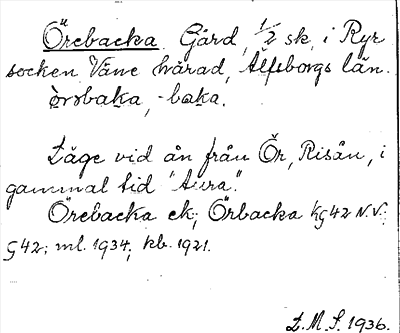 Örebacka. Gård, 1/2 sk, i Ryr
socken, Väne härad, Älfsborgs län.
-baka.
Läge vid ån från Ör, Risån, i
gammal tid "Aura".
Örebacka ek; Örbacka kg 42 N.V.;
G 42; ml. 1934; kb. 1921.
L.M.S. 1936.